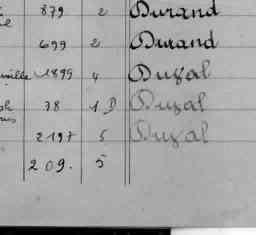 879 2 Durand
le
699 2 Durand
ville 1899 4 Duval
ph 78 1 D Duval
2197 5 Duval
209. 5